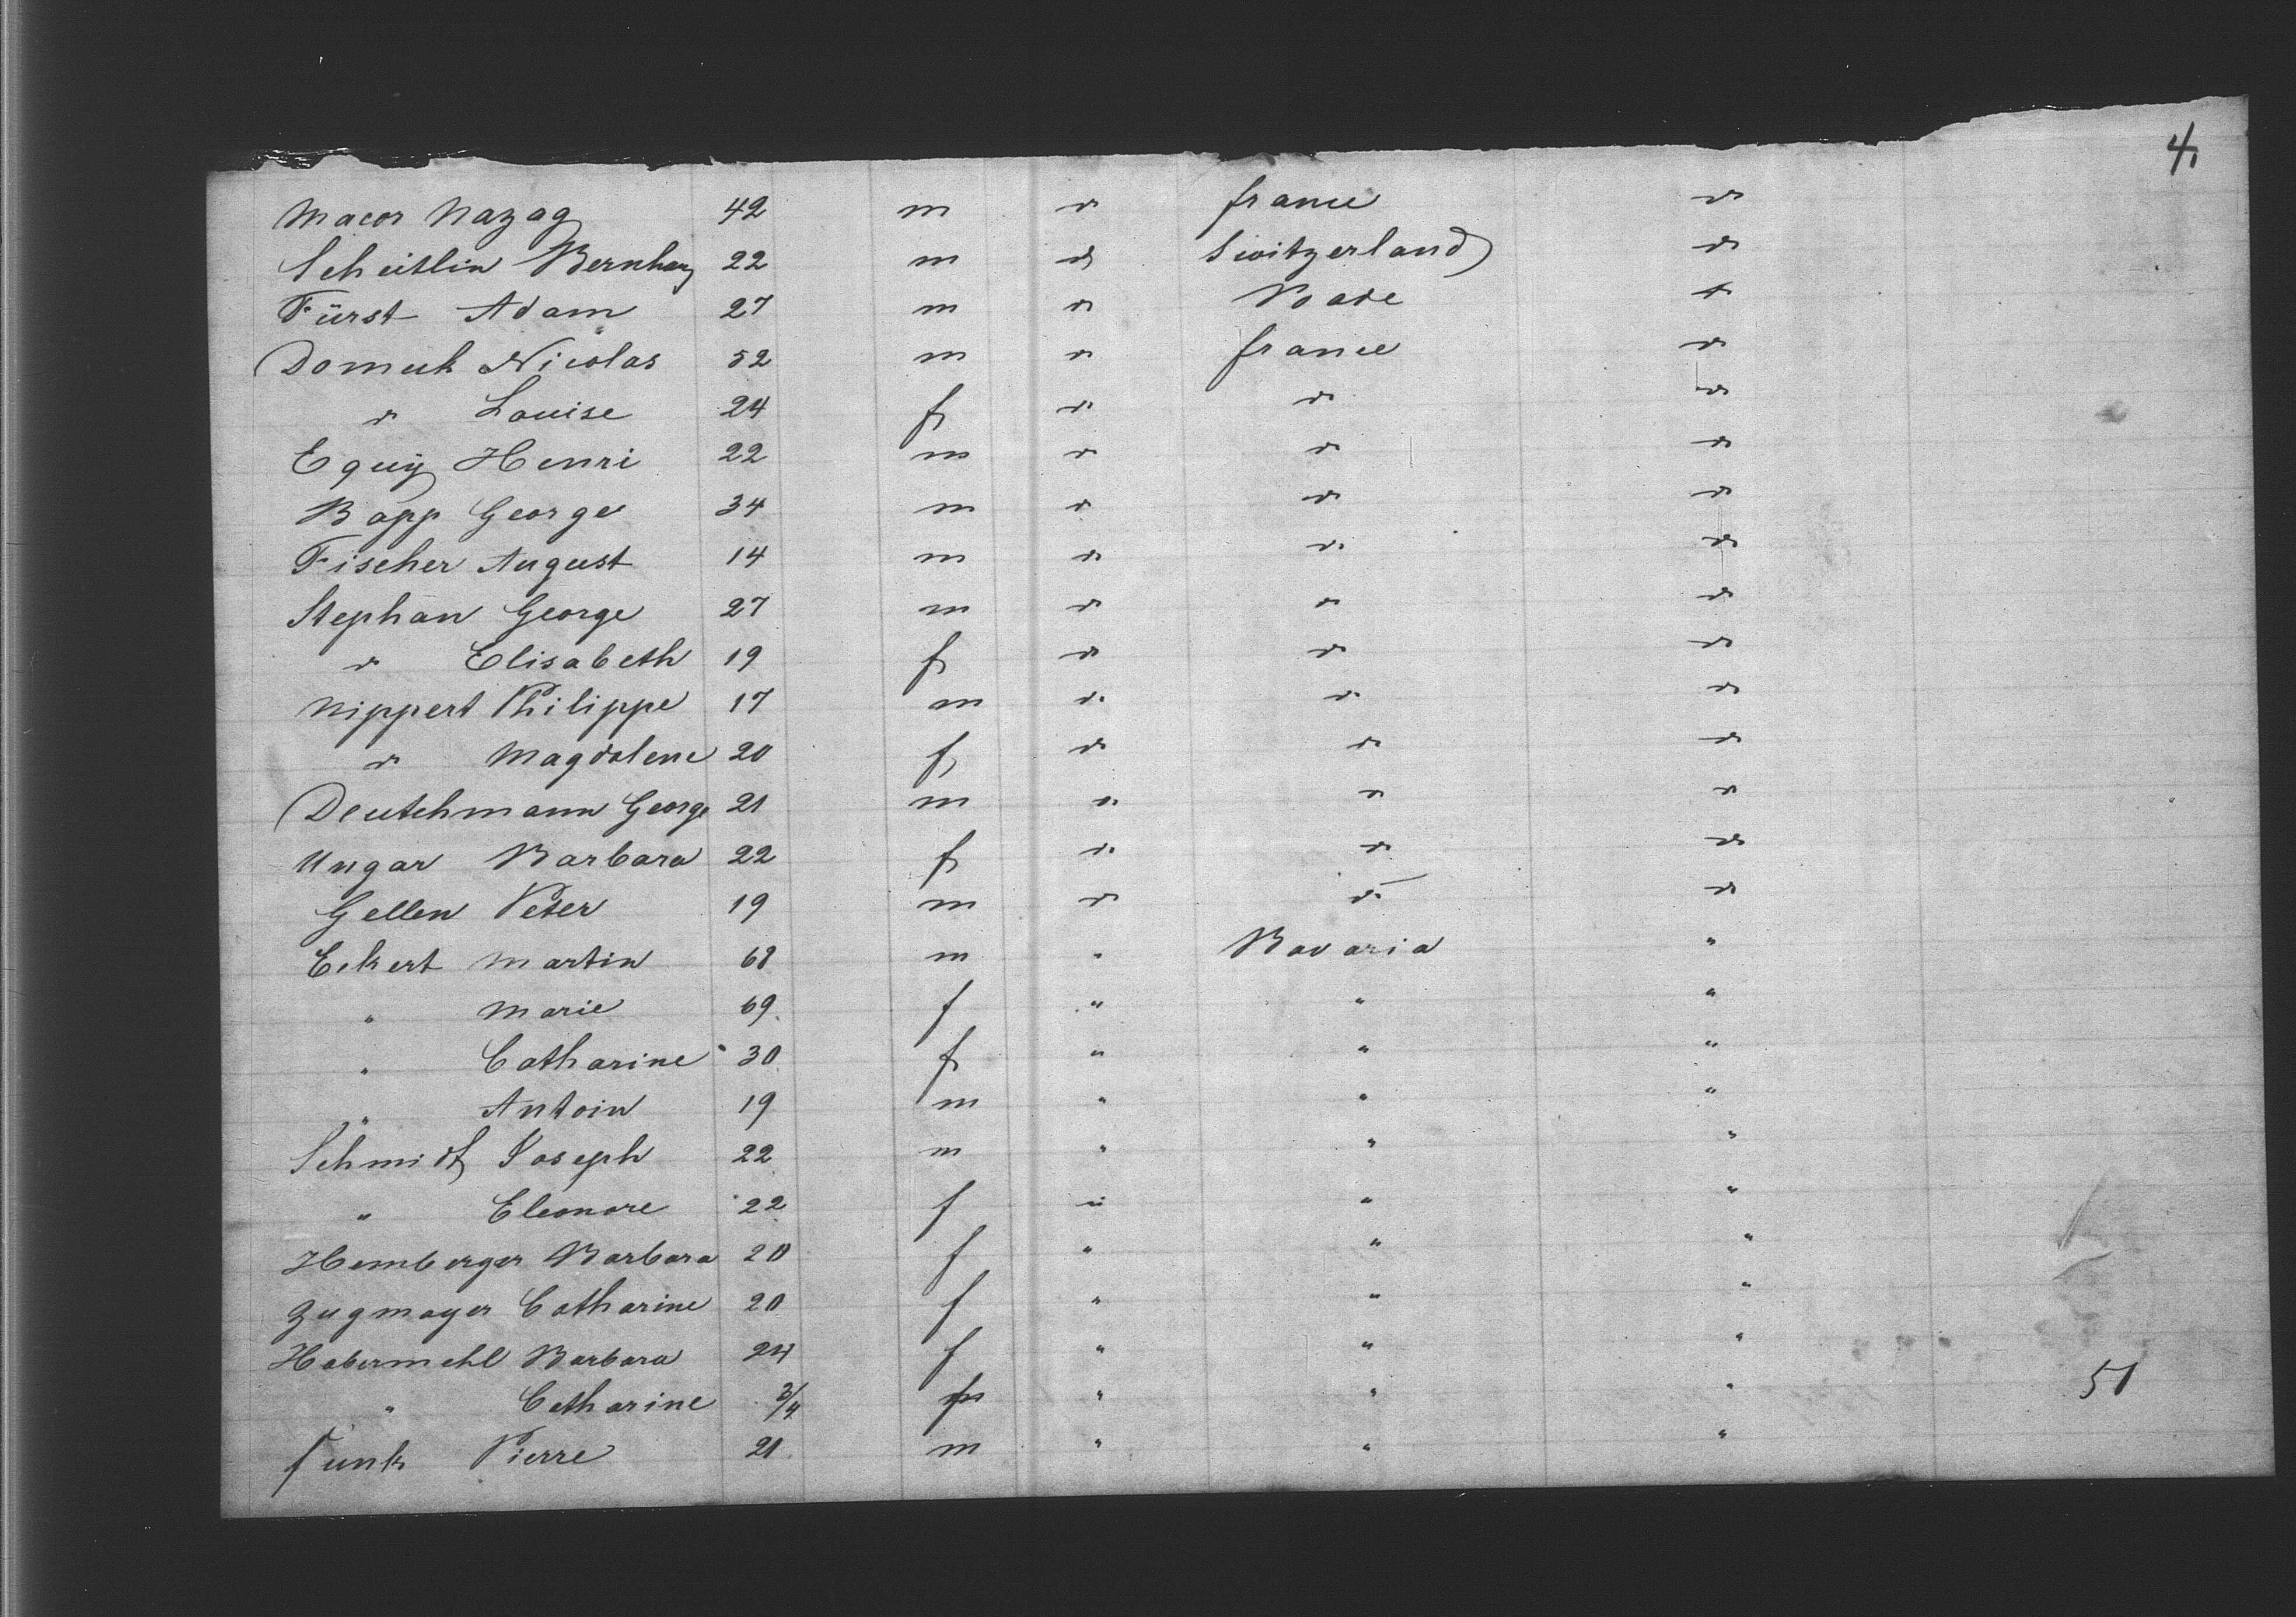 4,
Macor Nazag 42 m d france d
Scheitlin Bernhar 22 m d Switzerland d
Fürst Adam 27 m d Bade d
Domeck Nicolas 52 m d france d
d Louise 24 f d d d
Equÿ Henri 22 m d d d
Bapp George 34 m d d d
Fischer August 14 m d d d
Stephan George 27 m d d d
d Elisabeth 19 f d d d
Nippert Philippe 17 m d d d
d Magdalene 20 f d d d
Deutchmann George 21 m d d d
Ungar Barbara 22 f d d d
Gellen Peter 19 m d d d
Eckert Martin 68 m " Bavaria "
" Marie 69 f " " "
" Catharine 30 f " " "
" Antoin 19 m " " "
Schmidt Joseph 22 m " " "
" Eleonore 22 f " " "
Hemberger Barbara 20 f " " "
Zugmayer Catharine 20 f " " "
Habermehl Barbara 24 f " " "
" Catharine 3/4 f " " " 51
Funk Pierre 21 m " " "